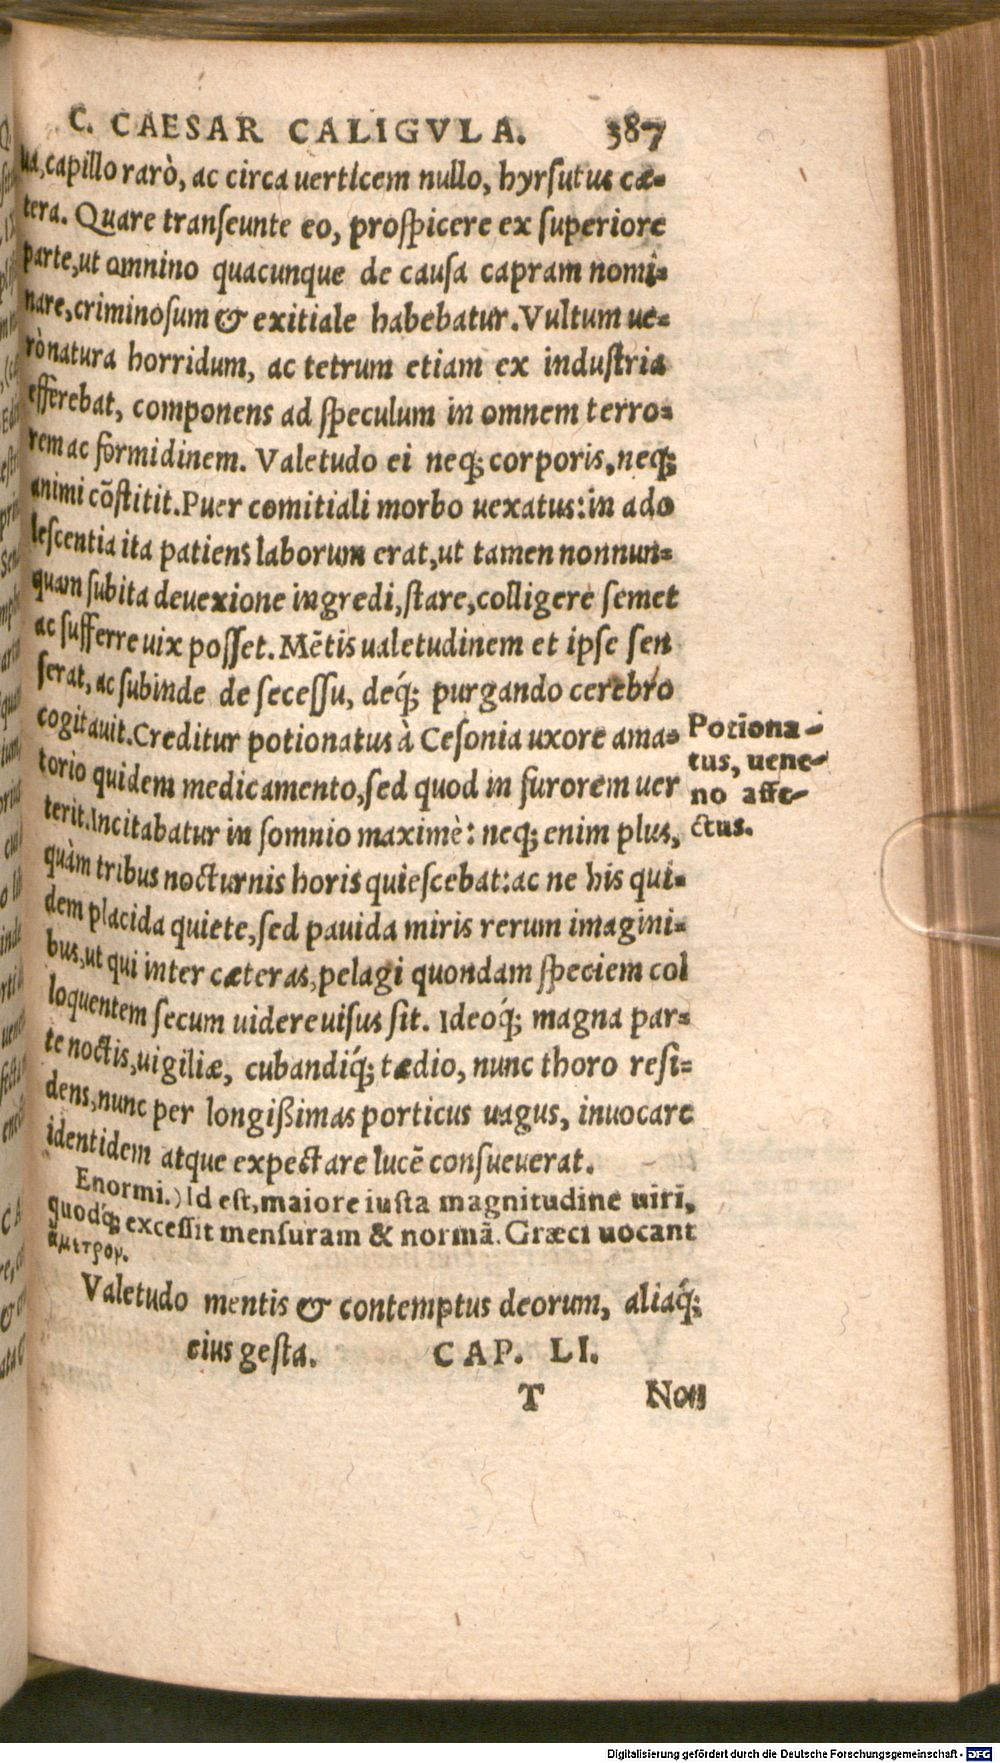 C. CAESAR CALIGVLA. 387
ua, capillo rarò, ac circa uerticem nullo, hyrsutus cæ-
tera. Quare transeunte eo, prospicere ex superiore
parte, ut omnino quacunque de causa capram nomi-
nare, criminosum & exitiale habebatur. Vultum ue-
rò natura horridum, ac tetrum etiam ex industria
efferebat, componens ad speculum in omnem terro-
rem ac formidinem. Valetudo ei neq; corporis, neq;
animi cõstitit. Puer comitiali morbo uexatus: in ado
lescentia ita patiens laborum erat, ut tamen nonnun-
quam subita deuexione ingredi, stare, colligere semet
ac sufferre uix posset. Mẽtis ualetudinem et ipse sen
serat, ac subinde de secessu, deq́; purgando cerebro
cogitauit. Creditur potionatus à Cesonia uxore ama-
torio quidem medicamento, sed quod in furorem uer
terit. Incitabatur in somnio maximè: neq; enim plus,
quàm tribus nocturnis horis quiescebat: ac ne his qui-
dem placida quiete, sed pauida miris rerum imagini-
bus, ut qui inter cæteras, pelagi quondam speciem col
loquentem secum uidere uisus sit. Ideoq́; magna par-
te noctis, uigiliæ, cubandiq́; tædio, nunc thoro resi-
dens, nunc per longißimas porticus uagus, inuocare
identidem atque expectare lucẽ consueuerat.
Potiona-
tus, uene-
no affe-
ctus.
Enormi.) Id est, maiore iusta magnitudine uiri,
quodq́; excessit mensuram & normã. Græci uocant
ἄμετρον.
Valetudo mentis & contemptus deorum, aliaq́;
eius gesta. CAP. LI.
T Non
Digitalisierung gefördert durch die Deutsche Forschungsgemeinschaft - DFG